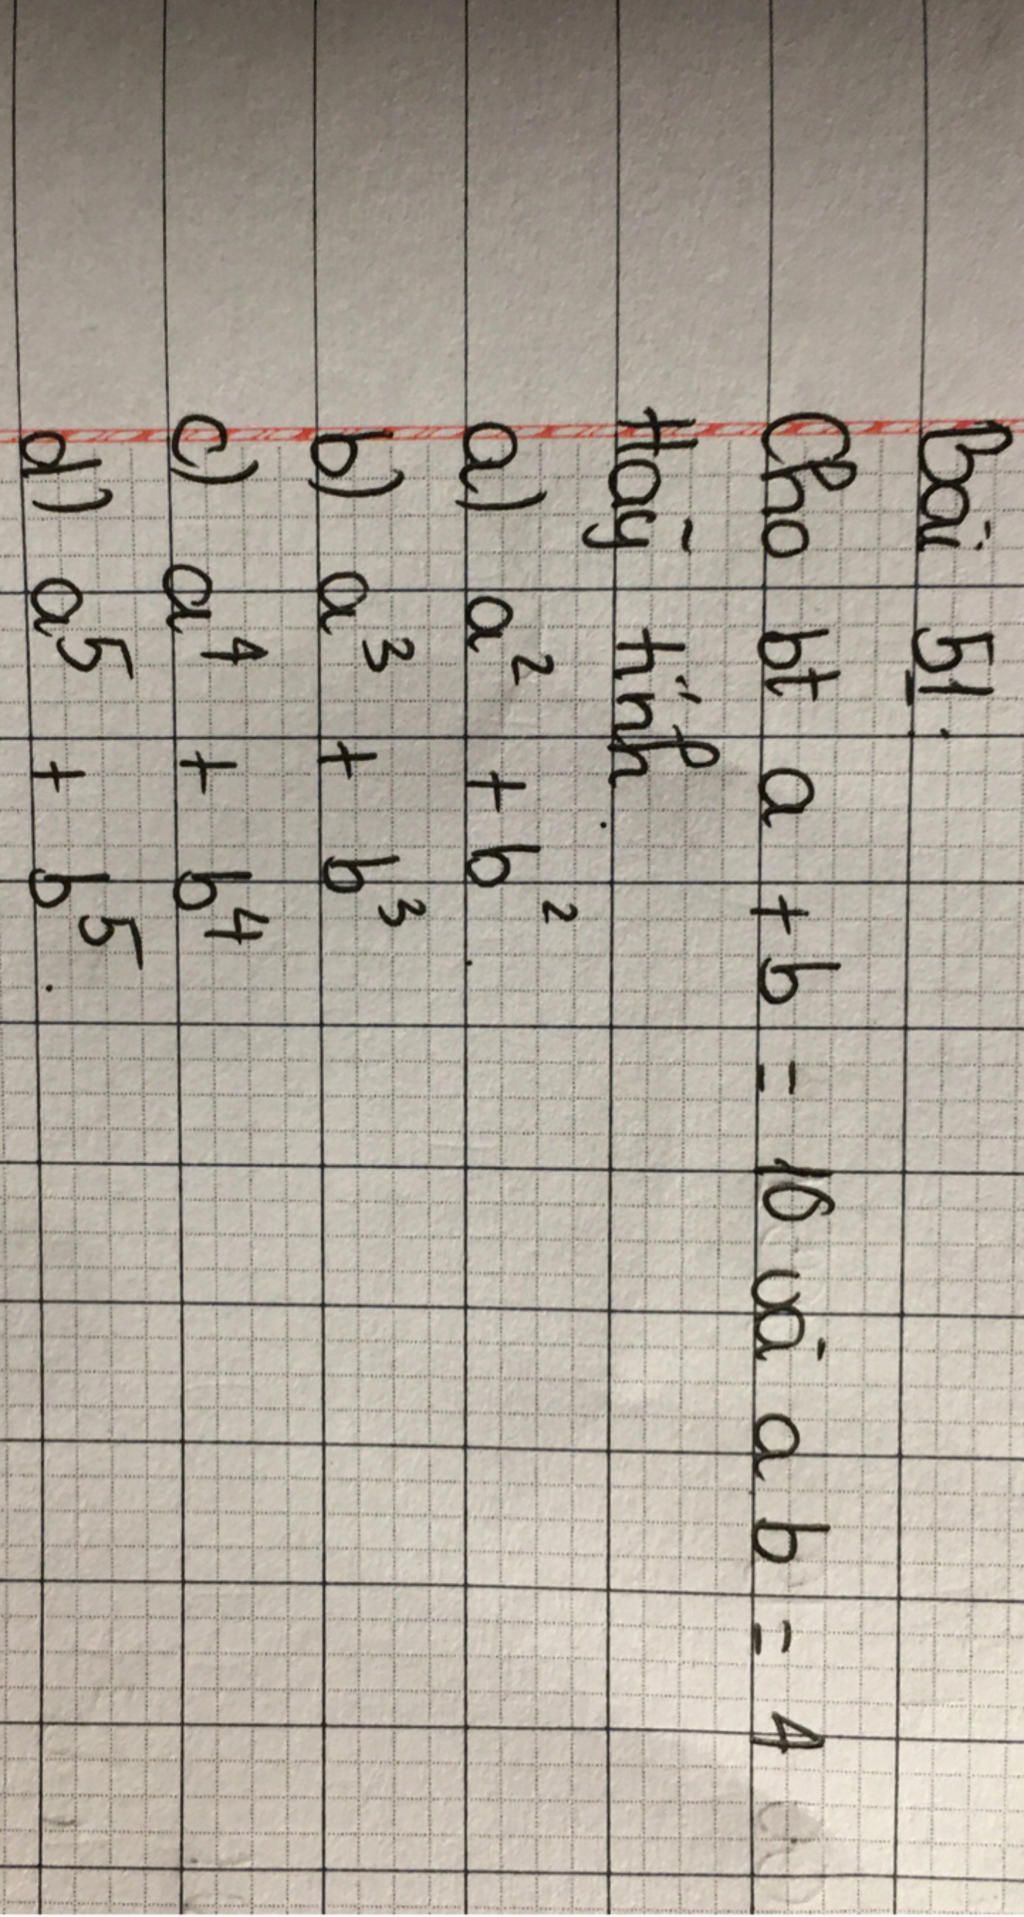 Bài 51.
Cho bt a + b = 16 và ab = 4
Hãy tính.
a) a² + b².
b) a³ + b³
c) a⁴ + b⁴
d) a⁵ + b⁵.